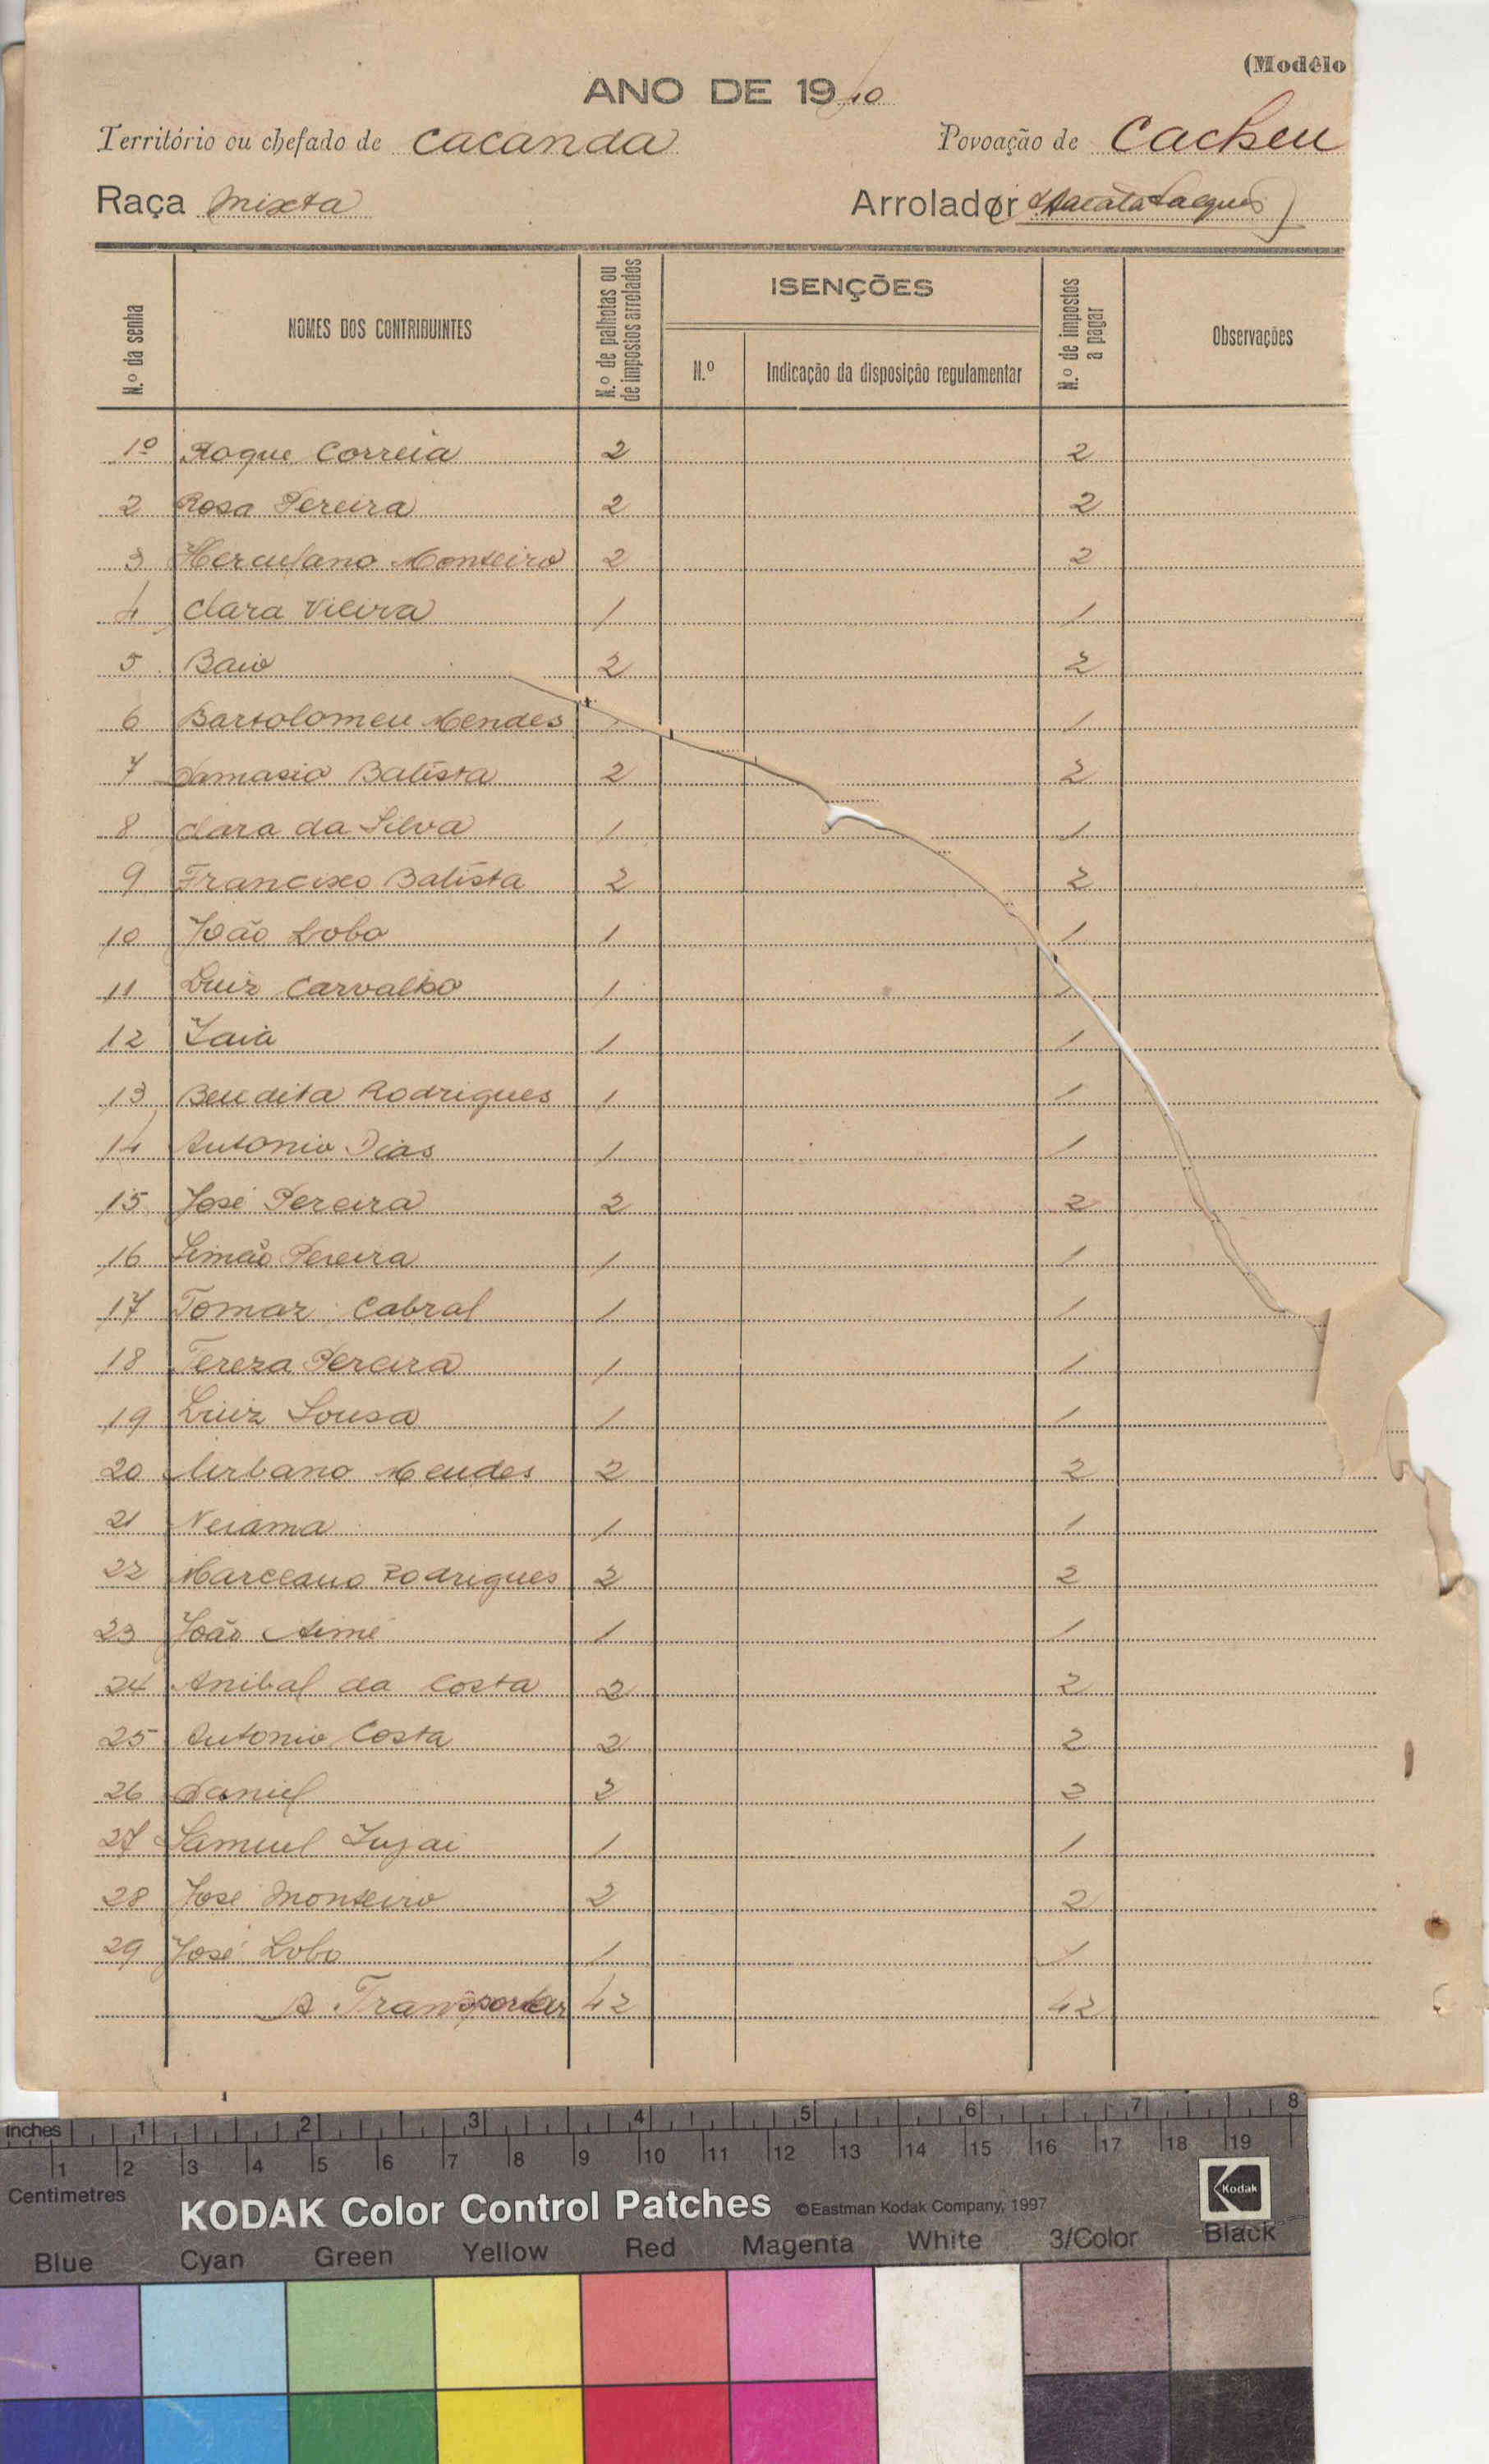 (Modêlo
ANO DE 19
Território ou chefado de Cacanda Povoação de Cacheu
Raça Mixta Arrolador
N.º da senha NOMES DOS CONTRIBUINTES N.º de palhotas ou de impostos arrolados ISENÇÕES N.º Indicação da disposição regulamentar N.º de impostos a pagar Observações
1º Roque Correia 2 2
2 Rosa Pereira 2 2
3 Herculano Monteiro 2 2
4 Clara Vieira 1 1
5 Baio 2 2
6 Bartolomeu Mendes 1 1
7 Damasio Batista 2 2
8 Clara da Silva 1 1
9 Francisco Batista 2 2
10 João Lobo 1 1
11 Luiz Carvalho 1 1
12 1 1
13 Bendita Rodrigues 1 1
14 Antonio Dias 1 1
15 José Pereira 2 2
16 Simão Pereira 1 1
17 Tomaz Cabral 1 1
18 Tereza Pereira 1 1
19 Luiz Sousa 1 1
20 Urbano Mendes 2 2
21 Neiama 1 1
22 Marceano Rodrigues 2 2
23 João 1 1
24 Anibal da Costa 2 2
25 Antonio Costa 2 2
26 Daniel 2 2
27 Samuel 1 1
28 José Monteiro 2 2
29 José Lobo 1 1
A Transportar 42 42
inches 1 2 3 4 5 6 7 8
1 2 3 4 5 6 7 8 9 10 11 12 13 14 15 16 17 18 19
Centimetres
KODAK Color Control Patches ©Eastman Kodak Company, 1997 Kodak
Blue Cyan Green Yellow Red Magenta White 3/Color Black